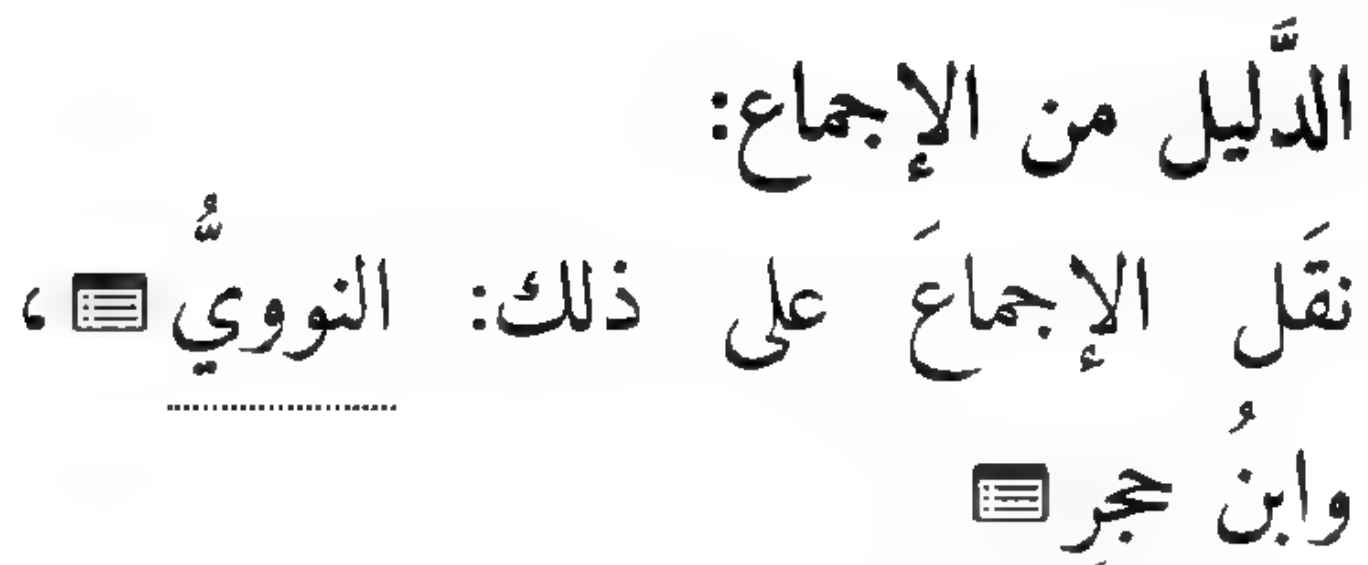 الدَّليل من الإجماع:
نقَل الإجماعَ على ذلك: النوويُّ ،
وابنُ حجرٍ